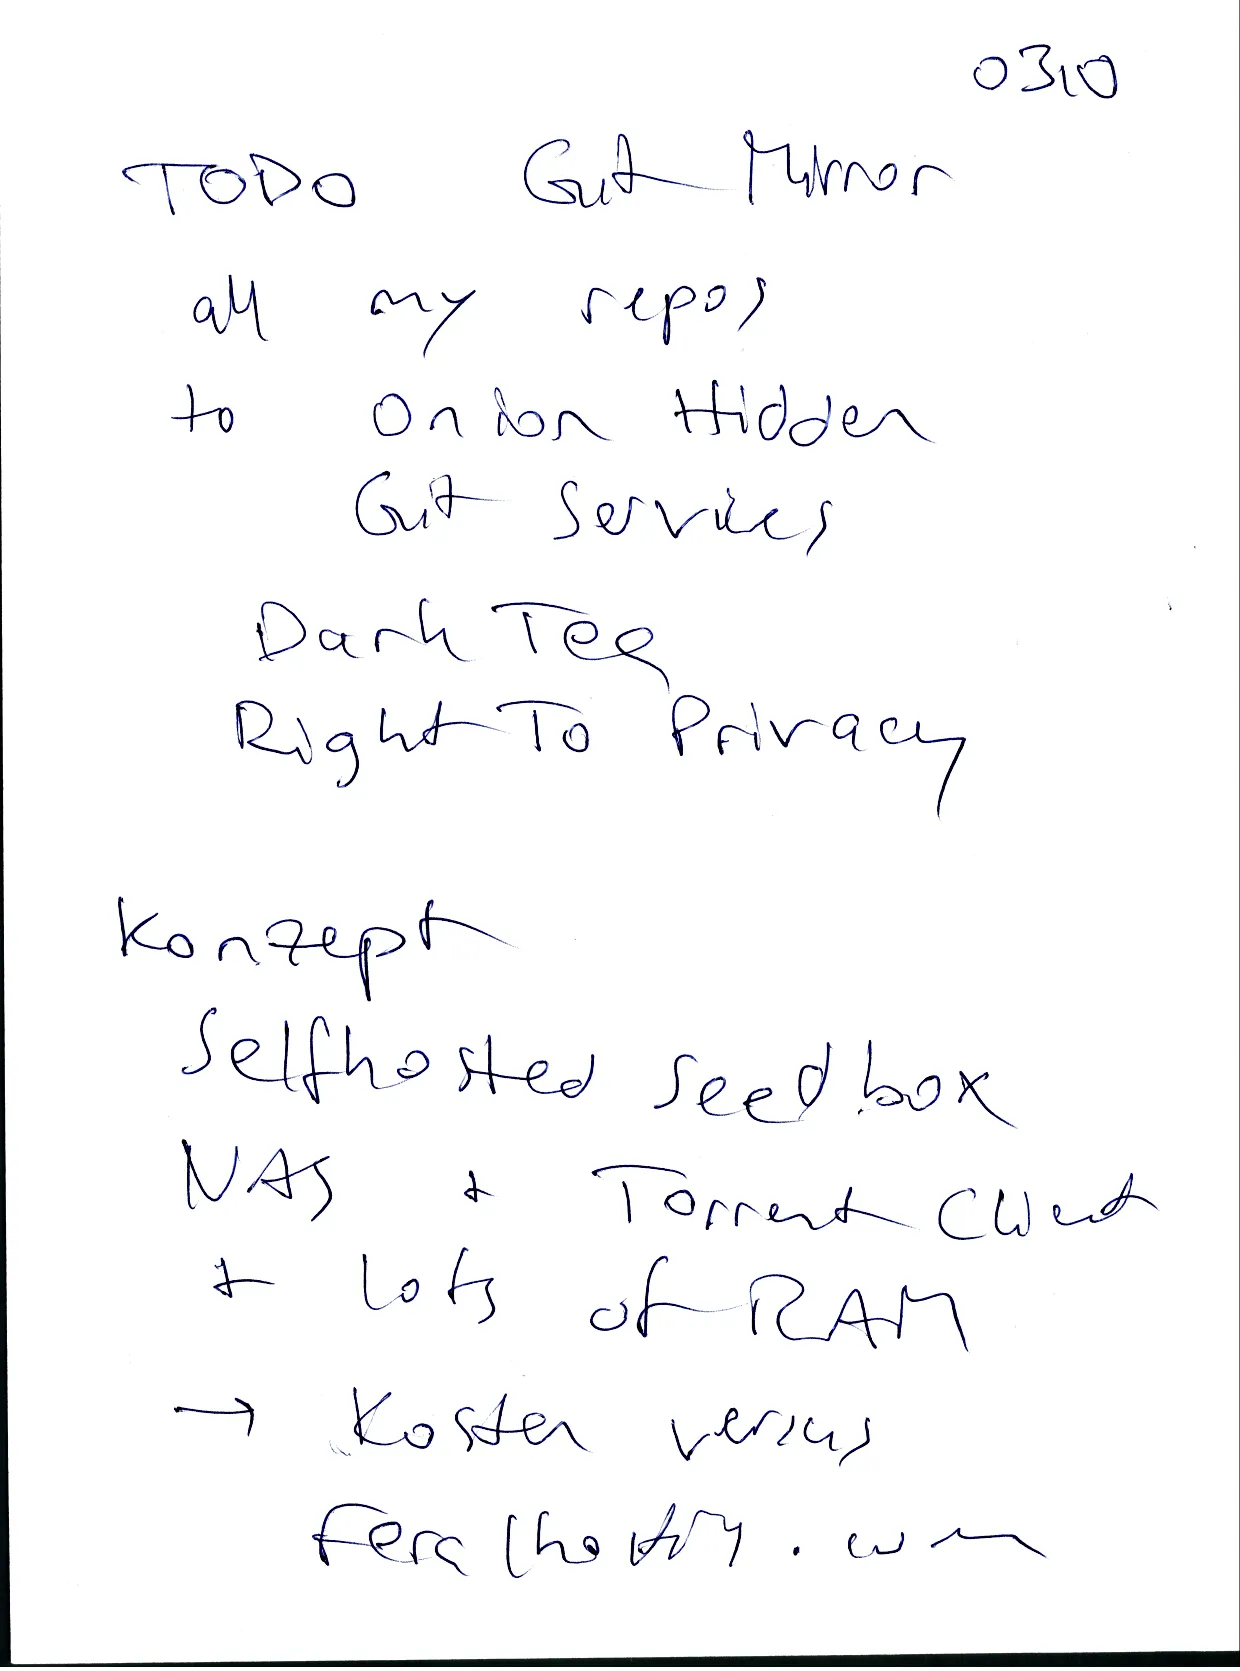 0310
TODO Git Mirror
all my repos
to Onion Hidden
Git Services
Dark Teq
Right To Privacy
Konzept
Selfhosted seedbox
NAS + Torrent Client
+ lots of RAM
→ Kosten versus
feralhosting.com